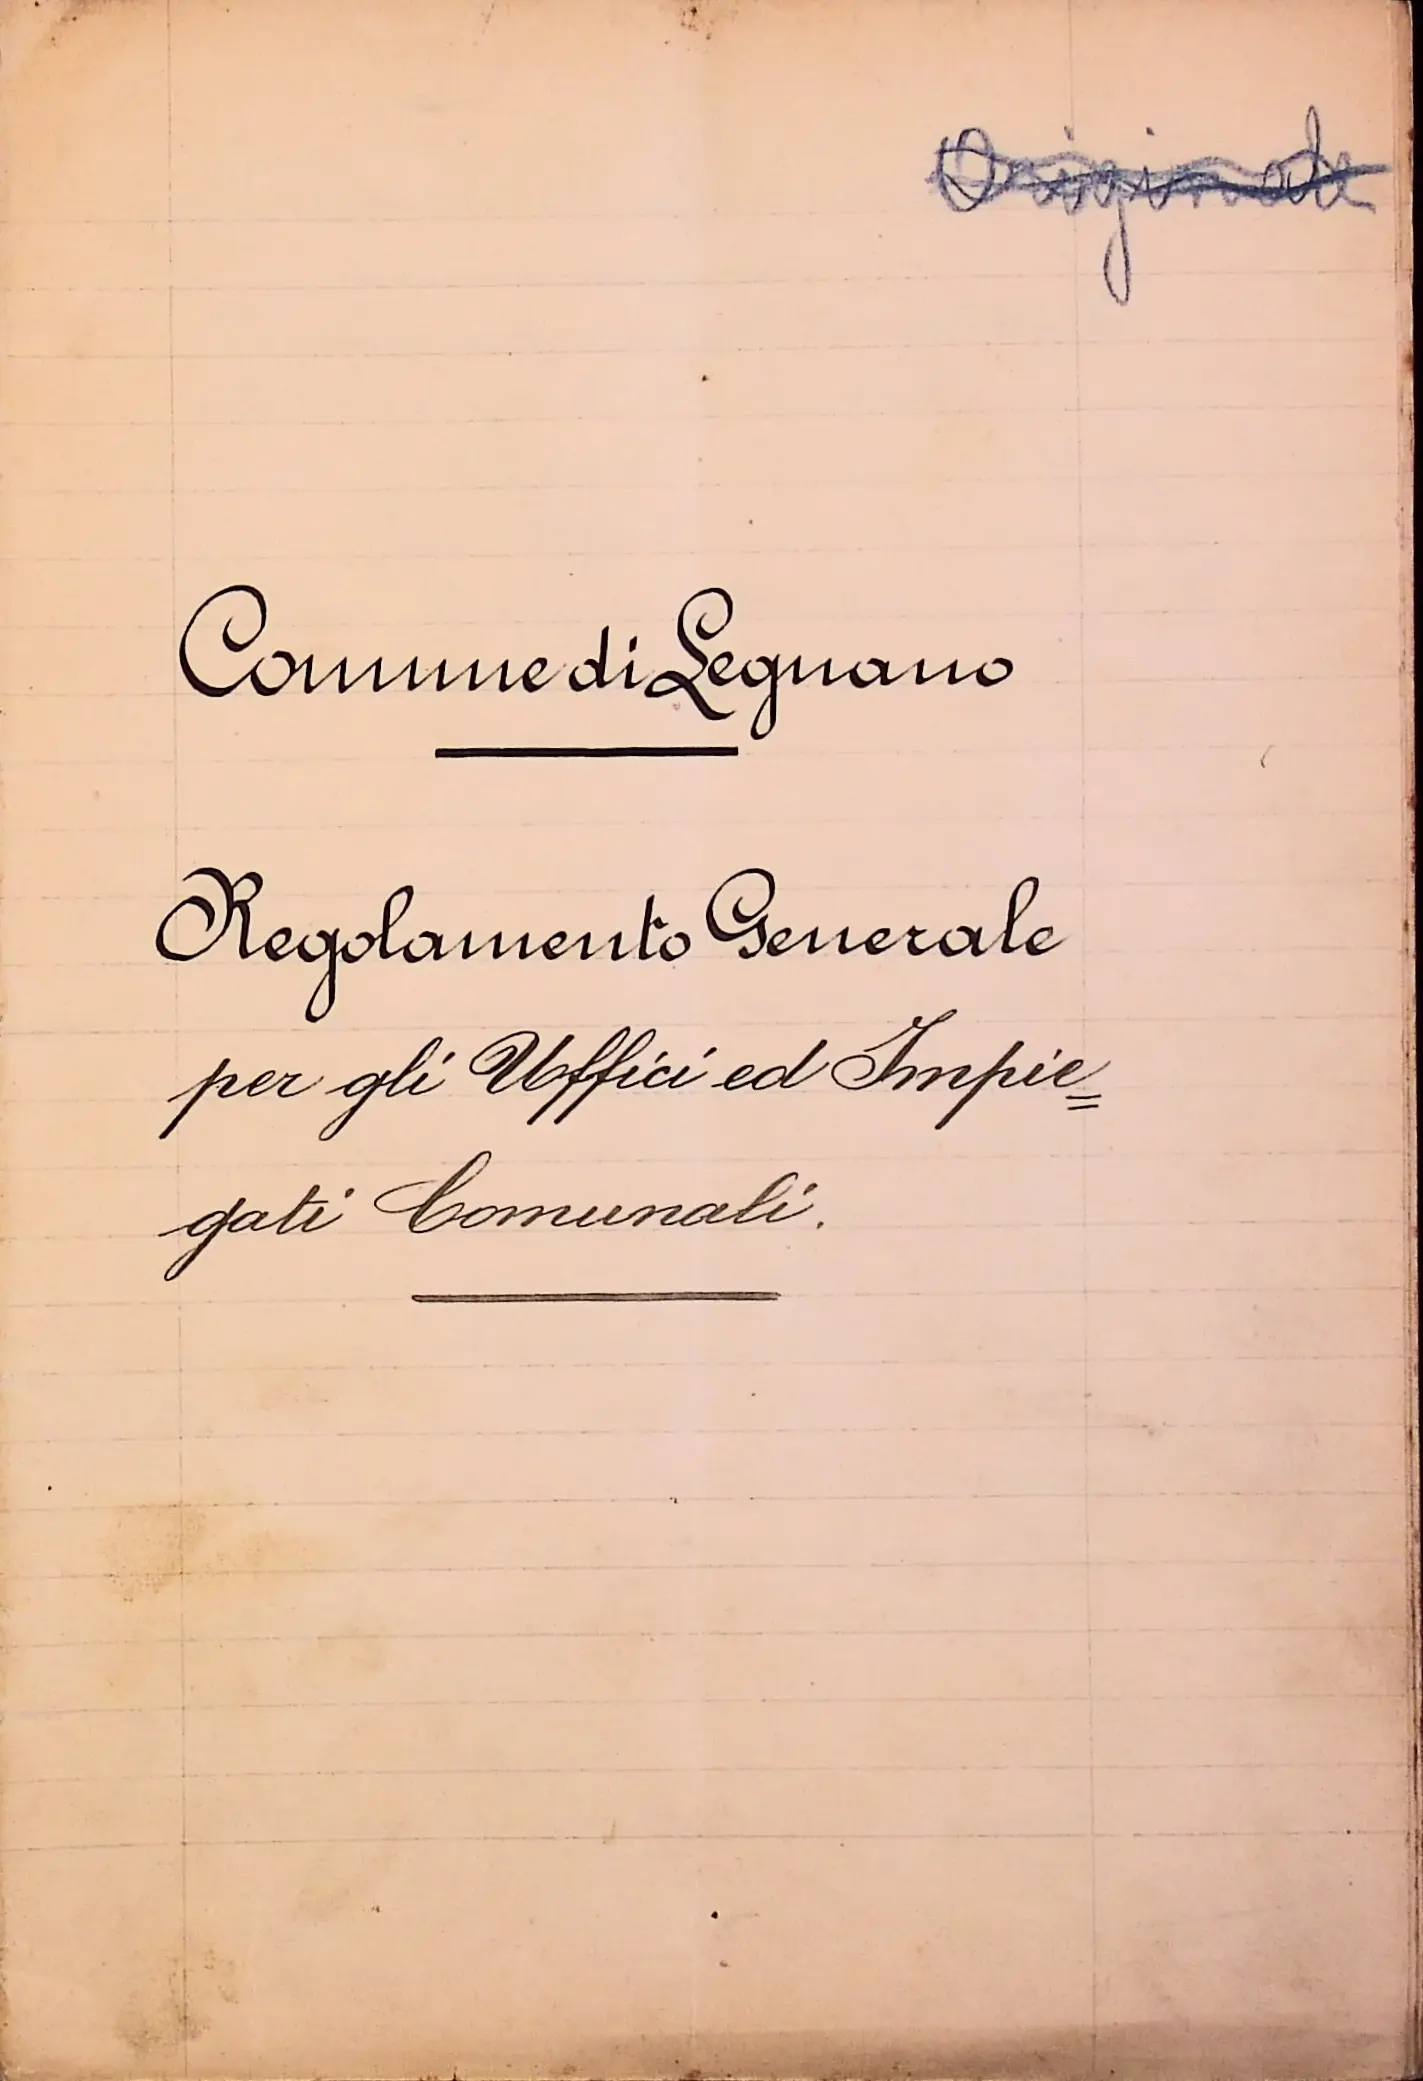 Originale
Comune di Legnano
Regolamento Generale
per gli Uffici ed Impie=
gati Comunali.